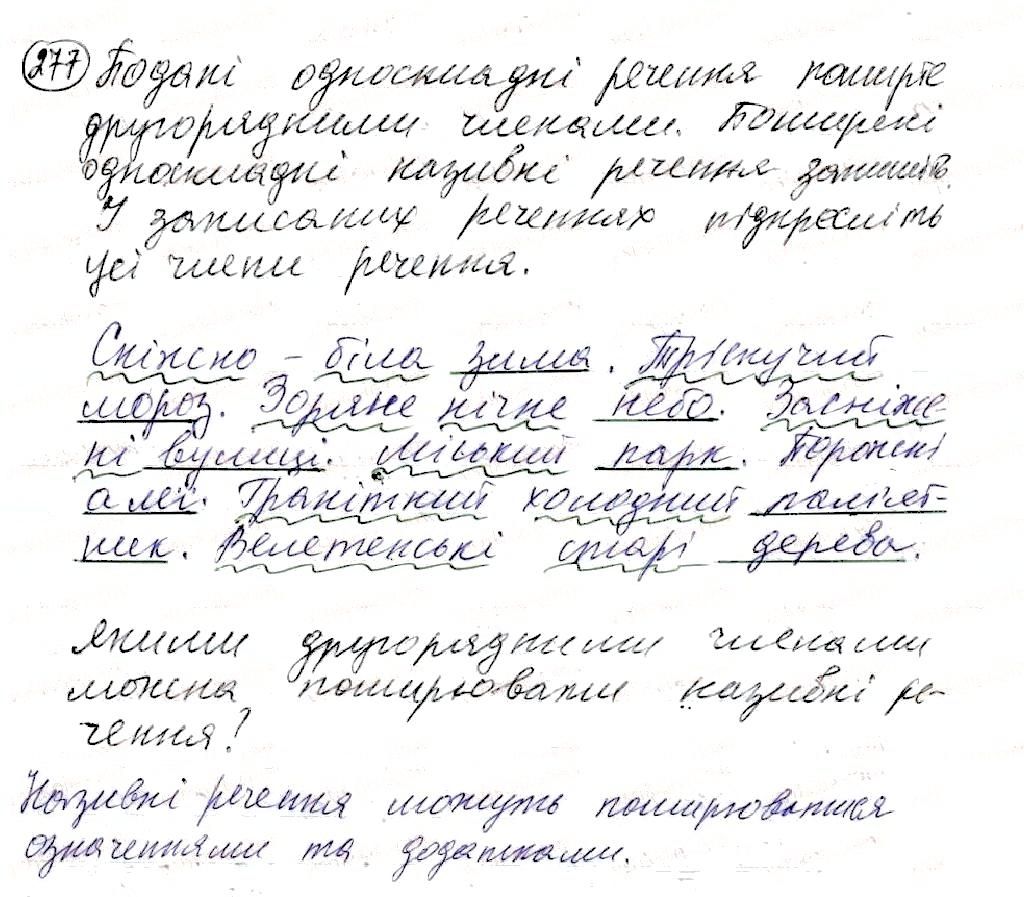 277 Подані односкладні речення поширте
другорядними членами. Поширені
односкладні називні речення запишіть.
У записаних реченнях підкресліть
усі члени речення.
Сніжно – біла зима. Тріскучий
мороз. Зоряне нічне небо. Засніже-
ні вулиці. Міський парк. Порожні
алеї. Гранітний холодний памʼят-
ник. Велетенські старі дерева.
Якими другорядними членами
можна поширювати називні ре-
чення?
Називні речення можуть поширюватися
означеннями та додатками.